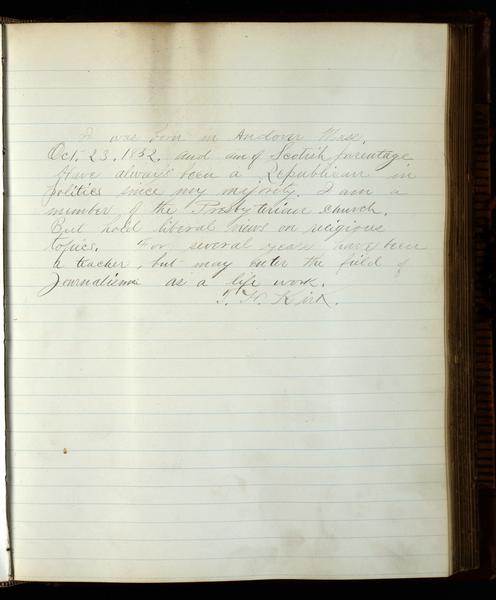 I was born in Andover Mass.
Oct. 23, 1852. and am of Scotish parentage
Have always been a Republican in
politics since my majority. I am a
member of the Presbyterian church.
But hold liberal views on religious
topics. For several years have been
a teacher, but may enter the field of
Journalism as a life work.
Kirk.